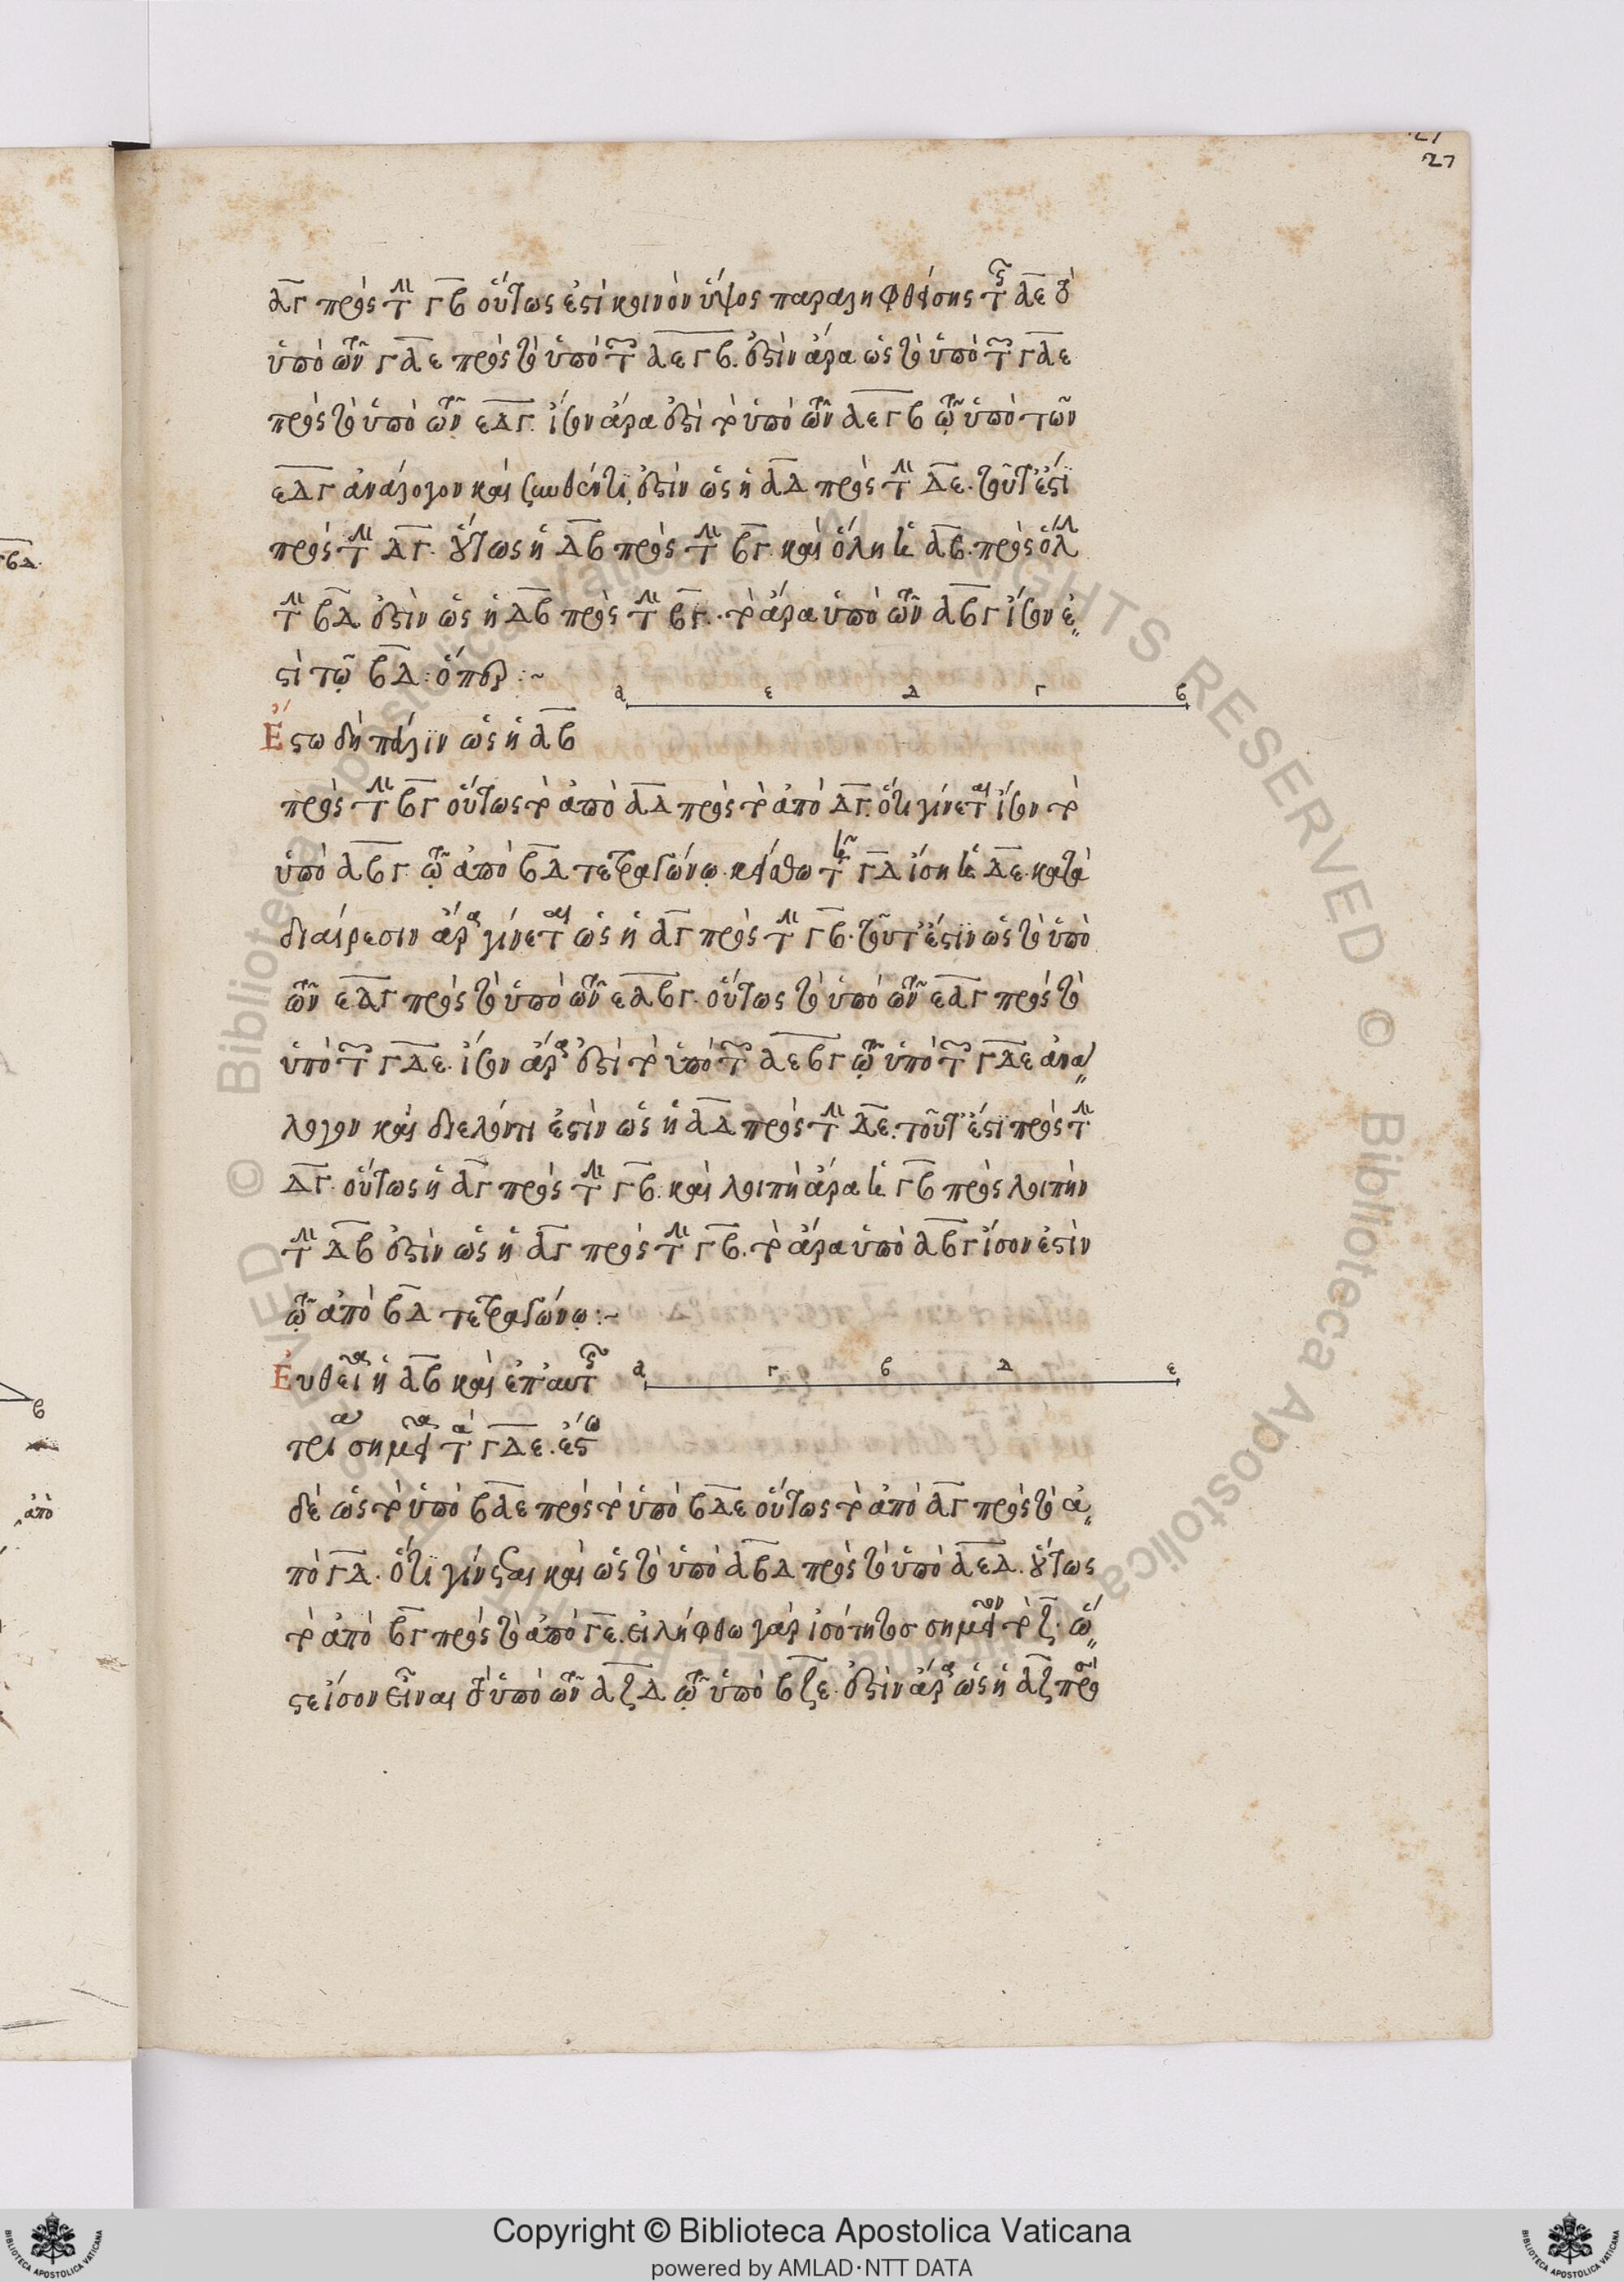 27
27
ΑΓ πρὸς τὴν ΓΒ οὕτως ἐστὶ κοινὸν ὕψος παραληφθείσης τῆς ΑΕ τὸ
ὑπὸ τῶν ΓΑΕ πρὸς τὸ ὑπὸ τῶν ΑΕΓΒ. ἔστιν ἄρα ὡς τὸ ὑπὸ τῶν ΓΑΕ
πρὸς τὸ ὑπὸ τῶν ΕΔΓ. ἴσον ἄρα ἐστὶ τὸ ὑπὸ τῶν ΑΕΓΒ τῷ ὑπὸ τῶν
ΕΔΓ ἀνάλογον καὶ συνθέντι, ἐστὶν ὡς ἡ ΑΔ πρὸς τὴν ΔΕ. τοῦτ' ἐστὶ
πρὸς τὴν ΔΓ. οὕτως ἡ ΔΒ πρὸς τὴν ΒΓ. καὶ ὅλη ἡ ΑΒ. πρὸς ὅλην
τὴν ΒΔ ἐστὶν ὡς ἡ ΔΒ πρὸς τὴν ΒΓ. τὸ ἄρα ὑπὸ τῶν ΑΒΓ ἴσον ἐ
στὶ τῷ ΒΔ: ὅπερ :~
α ε Δ Γ β
Ἔστω δὴ πάλιν ὡς ἡ ΑΒ
πρὸς τὴν ΒΓ οὕτως τὸ ἀπὸ ΑΔ πρὸς τὸ ἀπὸ ΔΓ. ὅτι γίνεται ἴσον τὸ
ὑπὸ ΑΒΓ τῷ ἀπὸ ΒΔ τετραγώνῳ. κείσθω τῇ ΓΔ ἴση ἡ ΔΕ. κατὰ
διαίρεσιν ἄρα γίνεται ὡς ἡ ΑΓ πρὸς τὴν ΓΒ. τοῦτ' ἔστιν ὡς τὸ ὑπὸ
τῶν ΕΑΓ πρὸς τὸ ὑπὸ τῶν ΕΑΒΓ. οὕτως τὸ ὑπὸ τῶν ΕΑΓ πρὸς τὸ
ὑπὸ τῶν ΓΔΕ. ἴσον ἄρα ἐστὶ τὸ ὑπὸ τῶν ΑΕΒΓ τῷ ὑπὸ τῶν ΓΔΕ ἀνά
λογον καὶ διελόντι ἐστὶν ὡς ἡ ΑΔ πρὸς τὴν ΔΕ. τοῦτ' ἐστὶ πρὸς τὴν
ΔΓ. οὕτως ἡ ΑΓ πρὸς τὴν ΓΒ. καὶ λοιπὴ ἄρα ἡ ΓΒ πρὸς λοιπὴν
τὴν ΔΒ ἐστὶν ὡς ἡ ΑΓ πρὸς τὴν ΓΒ. τὸ ἄρα ὑπὸ ΑΒΓ ἴσον ἐστὶν
τῷ ἀπὸ ΒΔ τετραγώνῳ :~
α Γ β Δ ε
Εὐθεῖα ἡ ΑΒ καὶ ἐπ' αὐτῆς
τρία σημεῖα τὰ ΓΔΕ. ἔστω
δὲ ὡς τὸ ὑπὸ ΒΑΕ πρὸς τὸ ὑπὸ ΒΔΕ οὕτως τὸ ἀπὸ ΑΓ πρὸς τὸ ἀ
πὸ ΓΔ. ὅτι γίνεται καὶ ὡς τὸ ὑπὸ ΑΒΔ πρὸς τὸ ὑπὸ ΑΕΔ. οὕτως
τὸ ἀπὸ ΒΓ πρὸς τὸ ἀπὸ ΓΕ. εἰλήφθω γὰρ ἰσότητος σημεῖον τὸ Ζ. ὥ
στε ἴσον εἶναι τὸ ὑπὸ τῶν ΑΖΔ τῷ ὑπὸ ΒΖΕ. ἐστὶν ἄρα ὡς ἡ ΑΖ πρὸς
ἀπὸ
© Biblioteca Apostolica Vaticana ALL RIGHTS RESERVED
Copyright © Biblioteca Apostolica Vaticana
powered by AMLAD·NTT DATA